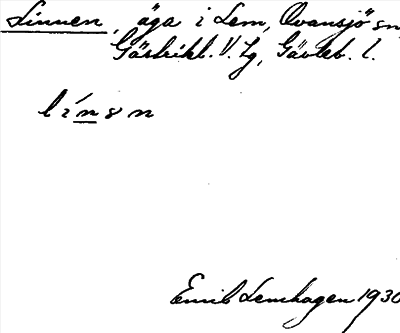 Linnen, äga i Lem, Ovansjö sn
Gästrikl. V. tg, Gävleb. l.
línən
Emil Lemhagen 1930